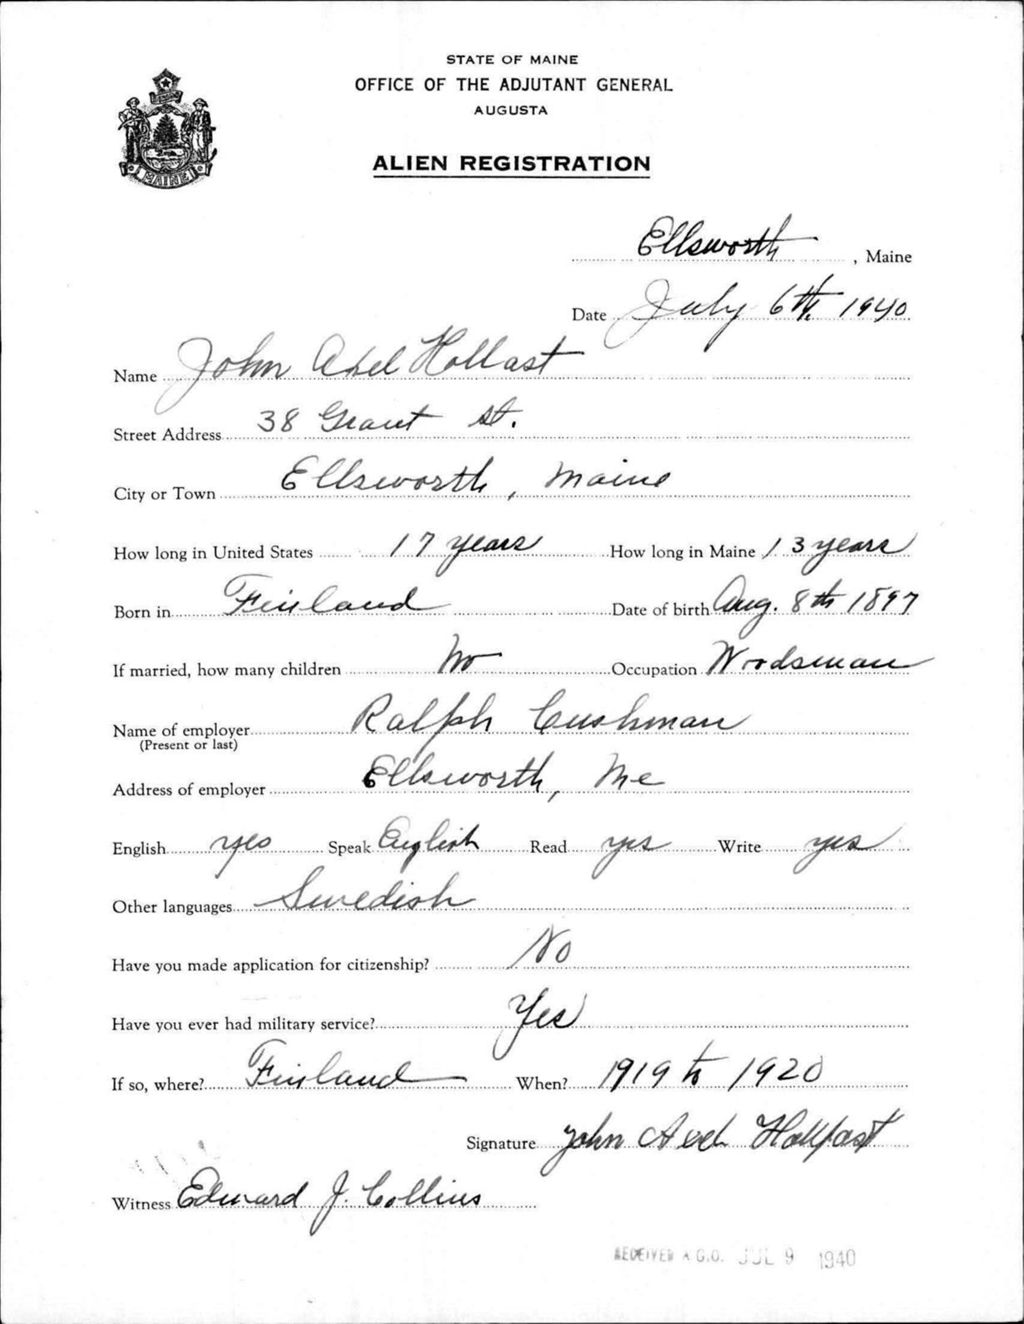 STATE OF MAINE
OFFICE OF THE ADJUTANT GENERAL
AUGUSTA
ALIEN REGISTRATION
MAINE
Ellsworth, Maine
Date July 6th, 1940
Name John Axel Hollast
Street Address 38 Grant St.
City or Town Ellsworth, Maine
How long in United States 17 years How long in Maine 13 years
Born in Finland Date of birth Aug. 8th 1897
If married, how many children No Occupation Wodsman
Name of employer Ralph Cushman
(Present or last)
Address of employer Ellsworth, Me
English yes Speak English Read yes Write yes
Other languages Swedish
Have you made application for citizenship? No
Have you ever had military service? Yes
If so, where? Finland When? 1919 to 1920
Signature John Axel Hollfast
Witness Edward J. Collins
RECEIVED A.G.O. JUL 9 1940